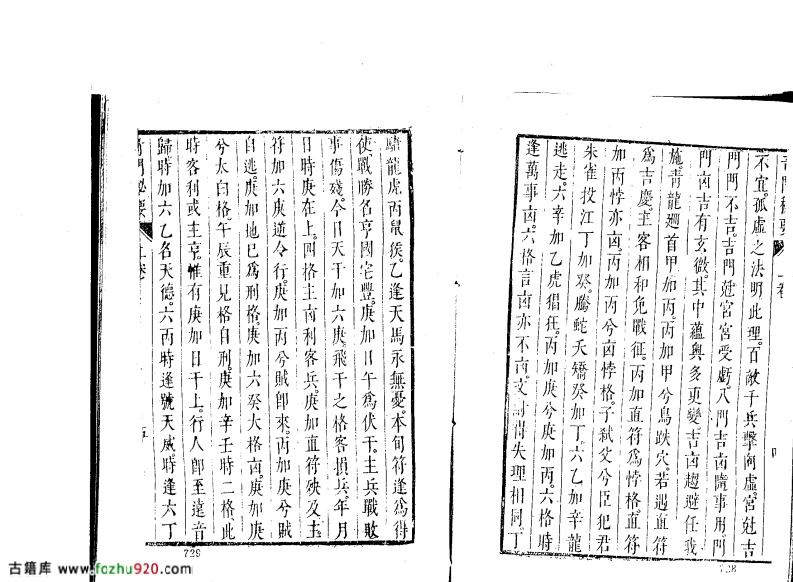 不宜。孤虛之法明此理。百敵于兵擊向虛。宮尅吉
門門不吉。吉門尅宮宮受虧。八門吉凶隨事用。門
門凶吉有玄微。其中蘊奧多更變。吉凶趨避任我
施。青龍廻首甲加丙。丙加甲兮鳥跌穴。若遇直符
爲吉慶。主客相和免戰征。丙加直符爲悖格。直符
加丙悖亦凶。丙加丙兮凶悖格。子弒父兮臣犯君
朱雀投江丁加癸。騰蛇夭矯癸加丁。六乙加辛龍
逃走。六辛加乙虎猖狂。丙加庚兮庚加丙。六格時
逢萬事凶。六格言凶亦不凶。文討得失理相同。丁
四
728
驕龍虎丙鼠猴。乙逢天馬永無憂。本旬符逢爲得
使。戰勝名亨國宅豐。庚加日午爲伏干。主兵戰敗
事傷殘。今日天干加六庚。飛干之格客損兵。年月
日時庚在上。四格主凶利客兵。庚加直符殃及主
符加六庚逆令行。庚加丙兮賊即來。丙加庚兮賊
自逃。庚加地已爲刑格。庚加六癸大格凶。庚加庚
兮太白格。午辰重見格自刑。庚加辛壬時二格。此
時客利或主亨。惟有庚加日干上。行人即至遠音
歸。時加六乙名天德。六丙時逢號天威。時逢六丁
奇門秘要
上卷
五
729
古籍库 www.fozhu920.com